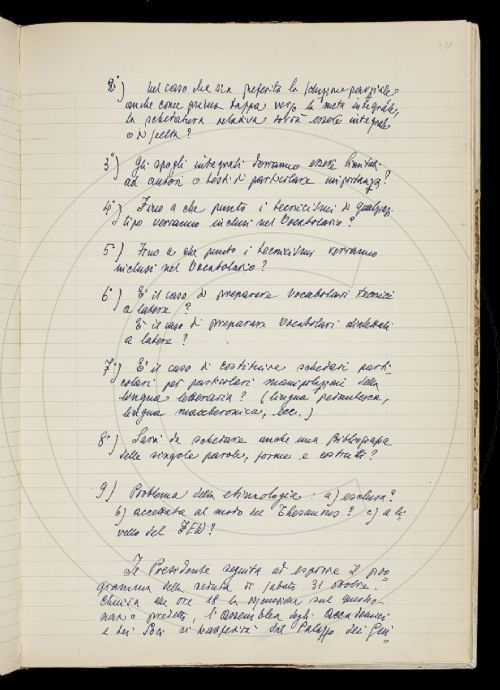 2°) Nel caso che sia preferita la soluzione parziale
anche come prima tappa verso la meta integrale,
la schedatura relativa dovrà essere integrale
o di scelta?
3°) Gli spogli integrali dovranno essere limitati
ad autori o testi di particolare importanza?
4°) Fino a che punto i tecnicismi di qualsiasi
tipo verranno inclusi nel Vocabolario?
5°) Fino a che punto i tecnicismi verranno
inclusi nel Vocabolario?
6°) È il caso di preparare vocabolari tecnici
a latere?
È il caso di preparare vocabolari dialettali
a latere?
7°) È il caso di costituire schedari parti-
colari per particolari manipolazioni della
lingua letteraria? (lingua pedantesca,
lingua maccheronica, ecc.)
8°) Sarà da schedare anche una Bibliografia
delle singole parole, forme e costrutti?
9) Problema della etimologia: a) esclusa?
b) accettata al modo del Thesaurus? c) a li-
vello del FEW?
Il Presidente seguita ad esporre il pro-
gramma della seduta di sabato 31 ottobre.
Chiusa alle ore 18 la discussione sul questio-
nario predetto, l'assemblea degli Accademici
e dei Soci si trasferirà dal Palazzo dei Giu-